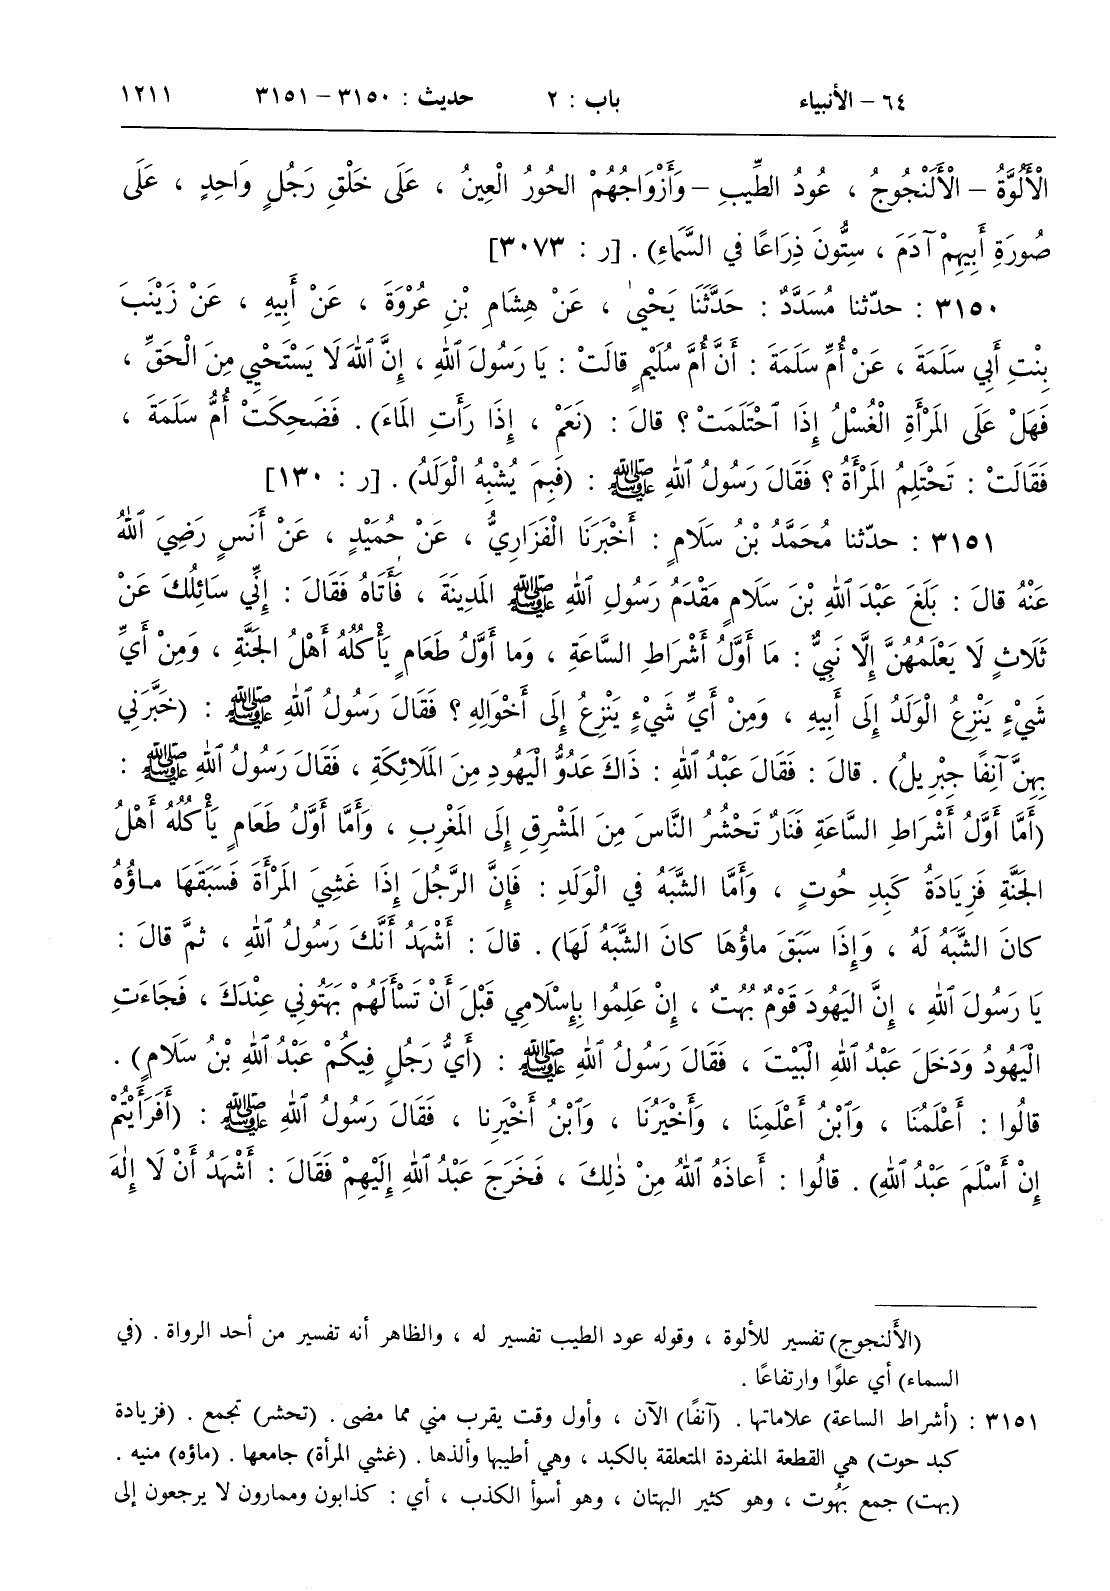 ٦٤ – الأنبياء باب : ٢ حديث : ٣١٥٠ – ٣١٥١ ١٢١١
الْأَلُوَّةُ – الْأَلَنْجُوجُ ، عُودُ الطِّيبِ – وَأَزْوَاجُهُمْ الحُورُ الْعِينُ ، عَلَى خَلْقِ رَجُلٍ وَاحِدٍ ، عَلَى
صُورَةِ أَبِيهِمْ آدَمَ ، سِتُّونَ ذِرَاعًا في السَّمَاءِ) . [ر : ٣٠٧٣]
٣١٥٠ : حدّثنا مُسَدَّدٌ : حَدَّثَنَا يَحْيىٰ ، عَنْ هِشَامِ بْنِ عُرْوَةَ ، عَنْ أَبِيهِ ، عَنْ زَيْنَبَ
بِنْتِ أَبِي سَلَمَةَ ، عَنْ أُمِّ سَلَمَةَ : أَنَّ أُمَّ سُلَيْمٍ قالَتْ : يَا رَسُولَ اللهِ ، إِنَّ اللهَ لَا يَسْتَحْيِي مِنَ الْحَقِّ ،
فَهَلْ عَلَى المَرْأَةِ الْغُسْلُ إِذَا ٱحْتَلَمَتْ ؟ قالَ : (نَعَمْ ، إِذَا رَأَتِ المَاءَ) . فَضَحِكَتْ أُمُّ سَلَمَةَ ،
فَقَالَتْ : تَحْتَلِمُ المَرْأَةُ ؟ فَقَالَ رَسُولُ ٱللهِ ﷺ : (فَبِمَ يُشْبِهُ الْوَلَدُ) . [ر : ١٣٠]
٣١٥١ : حدّثنا مُحَمَّدُ بْنُ سَلَامٍ : أَخْبَرَنَا الْفَزَارِيُّ ، عَنْ حُمَيْدٍ ، عَنْ أَنَسٍ رَضِيَ ٱللهُ
عَنْهُ قالَ : بَلَغَ عَبْدَ ٱللهِ بْنَ سَلَامٍ مَقْدَمُ رَسُولِ ٱللهِ ﷺ المَدِينَةَ ، فَأَتَاهُ فَقَالَ : إِنِّي سَائِلُكَ عَنْ
ثَلَاثٍ لَا يَعْلَمُهُنَّ إِلَّا نَبِيٌّ : مَا أَوَّلُ أَشْرَاطِ السَّاعَةِ ، وَما أَوَّلُ طَعَامٍ يَأْكُلُهُ أَهْلُ الجَنَّةِ ، وَمِنْ أَيِّ
شَيْءٍ يَنْزِعُ الْوَلَدُ إِلَى أَبِيهِ ، وَمِنْ أَيِّ شَيْءٍ يَنْزِعُ إِلَى أَخْوَالِهِ ؟ فَقَالَ رَسُولُ ٱللهِ ﷺ : (خَبَّرَنِي
بِهِنَّ آنِفًا جِبْرِيلُ) . قالَ : فَقَالَ عَبْدُ ٱللهِ : ذَاكَ عَدُوُّ الْيَهُودِ مِنَ المَلَائِكَةِ ، فَقَالَ رَسُولُ ٱللهِ ﷺ :
(أَمَّا أَوَّلُ أَشْرَاطِ السَّاعَةِ فَنَارٌ تَحْشُرُ النَّاسَ مِنَ المَشْرِقِ إِلَى المَغْرِبِ ، وَأَمَّا أَوَّلُ طَعَامٍ يَأْكُلُهُ أَهْلُ
الجَنَّةِ فَزِيَادَةُ كَبِدِ حُوتٍ ، وَأَمَّا الشَّبَهُ في الْوَلَدِ : فَإِنَّ الرَّجُلَ إِذَا غَشِيَ المَرْأَةَ فَسَبَقَهَا ماؤُهُ
كانَ الشَّبَهُ لَهُ ، وَإِذَا سَبَقَ ماؤُهَا كانَ الشَّبَهُ لَهَا) . قالَ : أَشْهَدُ أَنَّكَ رَسُولُ ٱللهِ ، ثمَّ قالَ :
يَا رَسُولَ ٱللهِ ، إِنَّ الْيَهُودَ قَوْمٌ بُهُتٌ ، إِنْ عَلِمُوا بِإِسْلَامِي قَبْلَ أَنْ تَسْأَلَهُمْ بَهَتُونِي عِنْدَكَ ، فَجَاءَتِ
الْيَهُودُ وَدَخَلَ عَبْدُ ٱللهِ الْبَيْتَ ، فَقَالَ رَسُولُ ٱللهِ ﷺ : (أَيُّ رَجُلٍ فِيكُمْ عَبْدُ ٱللهِ بْنُ سَلَامٍ) .
قالُوا : أَعْلَمُنَا ، وَٱبْنُ أَعْلَمِنَا ، وَأَخْيَرُنَا ، وَٱبْنُ أَخْيَرِنا ، فَقَالَ رَسُولُ ٱللهِ ﷺ : (أَفَرَأَيْتُمْ
إِنْ أَسْلَمَ عَبْدُ ٱللهِ) . قالُوا : أَعاذَهُ ٱللهُ مِنْ ذٰلِكَ ، فَخَرَجَ عَبْدُ ٱللهِ إِلَيْهِمْ فَقَالَ : أَشْهَدُ أَنْ لَا إِلٰهَ
(الألنجوج) تفسير للألوة ، وقوله عود الطيب تفسير له ، والظاهر أنه تفسير من أحد الرواة . (في
السماء) أي علوًا وارتفاعًا .
٣١٥١ : (أشراط الساعة) علاماتها . (آنفًا) الآن ، وأول وقت يقرب مني مما مضى . (تحشر) تجمع . (فزيادة
كبد حوت) هي القطعة المنفردة المتعلقة بالكبد ، وهي أطيبها وألذها . (غشي المرأة) جامعها . (ماؤه) منيه .
(بهت) جمع بَهُوت ، وهو كثير البهتان ، وهو أسوأ الكذب ، أي : كذابون وممارون لا يرجعون إلى